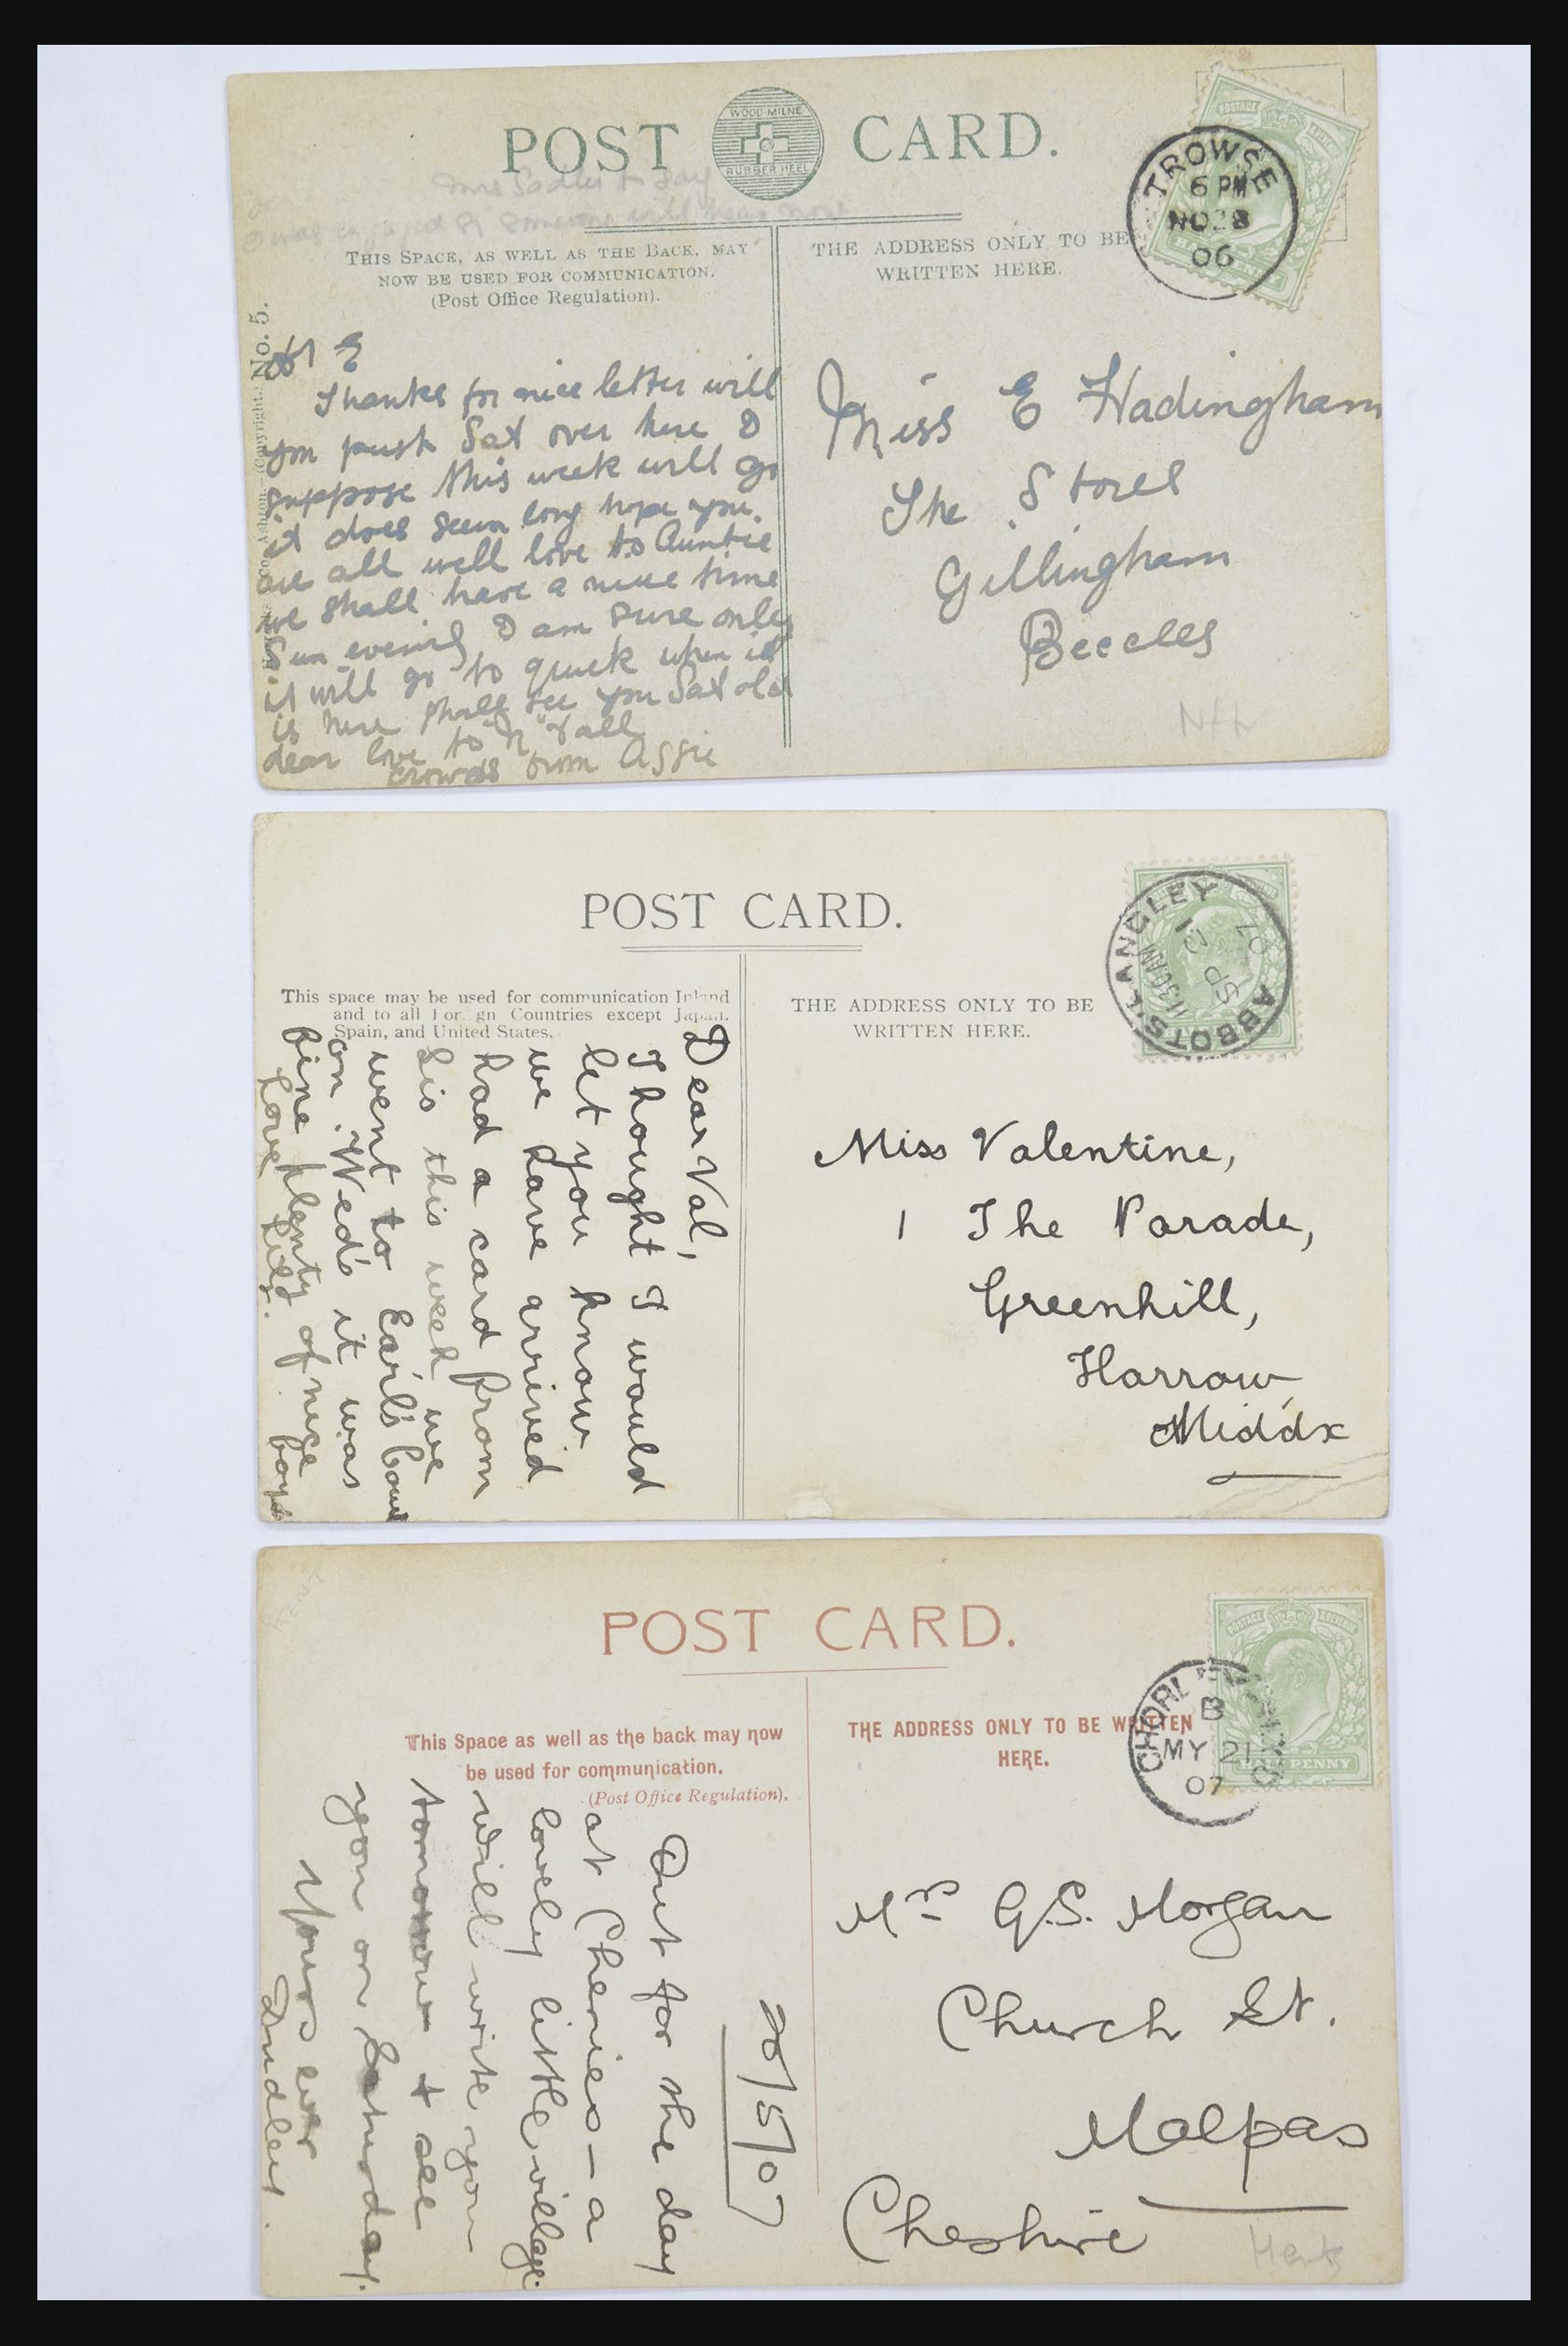 POST CARD.
WOOD-MILNE
RUBBER HEEL
Mrs Sadler to say
THIS SPACE, AS WELL AS THE BACK, MAY
NOW BE USED FOR COMMUNICATION.
(Post Office Regulation).
THE ADDRESS ONLY TO BE
WRITTEN HERE.
TROWSE
6 PM
NO 28
06
No. 5.
(Copyright.)
E
Thanks for nice letter will
you push Sat over here I
suppose this week will go
it does seem long hope you
are all well love to Auntie
we shall have a nice time
Sun evening I am sure only
it will go to quick when it
is here shall see you Sat old
dear love to "N" & all
crowds from Aggie
Miss E Hadingham
The Stores
Gillingham
Beccles
Nfk
POST CARD.
This space may be used for communication Inland
and to all Foreign Countries except Japan,
Spain, and United States.
THE ADDRESS ONLY TO BE
WRITTEN HERE.
ABBOTS·LANGLEY
11 30 AM
SP
07
Dear Val,
Thought I would
let you know
we have arrived
had a card from
Sis this week we
went to Earl's Court
on Wed's it was
fine plenty of nice boys
Love
Miss Valentine,
1 The Parade,
Greenhill,
Harrow
Middx
POST CARD.
This Space as well as the back may now
be used for communication.
(Post Office Regulation).
THE ADDRESS ONLY TO BE WRITTEN
HERE.
POSTAGE REVENUE
HALFPENNY
CHORLEYWOOD
B
MY 21
07
20/5/07
Out for the day
at Chenies - a
lovely little village.
will write you
tomorrow + see
you on Saturday.
Yours ever
Dudley.
Mrs G.S. Morgan
Church St.
Malpas
Cheshire
Herts